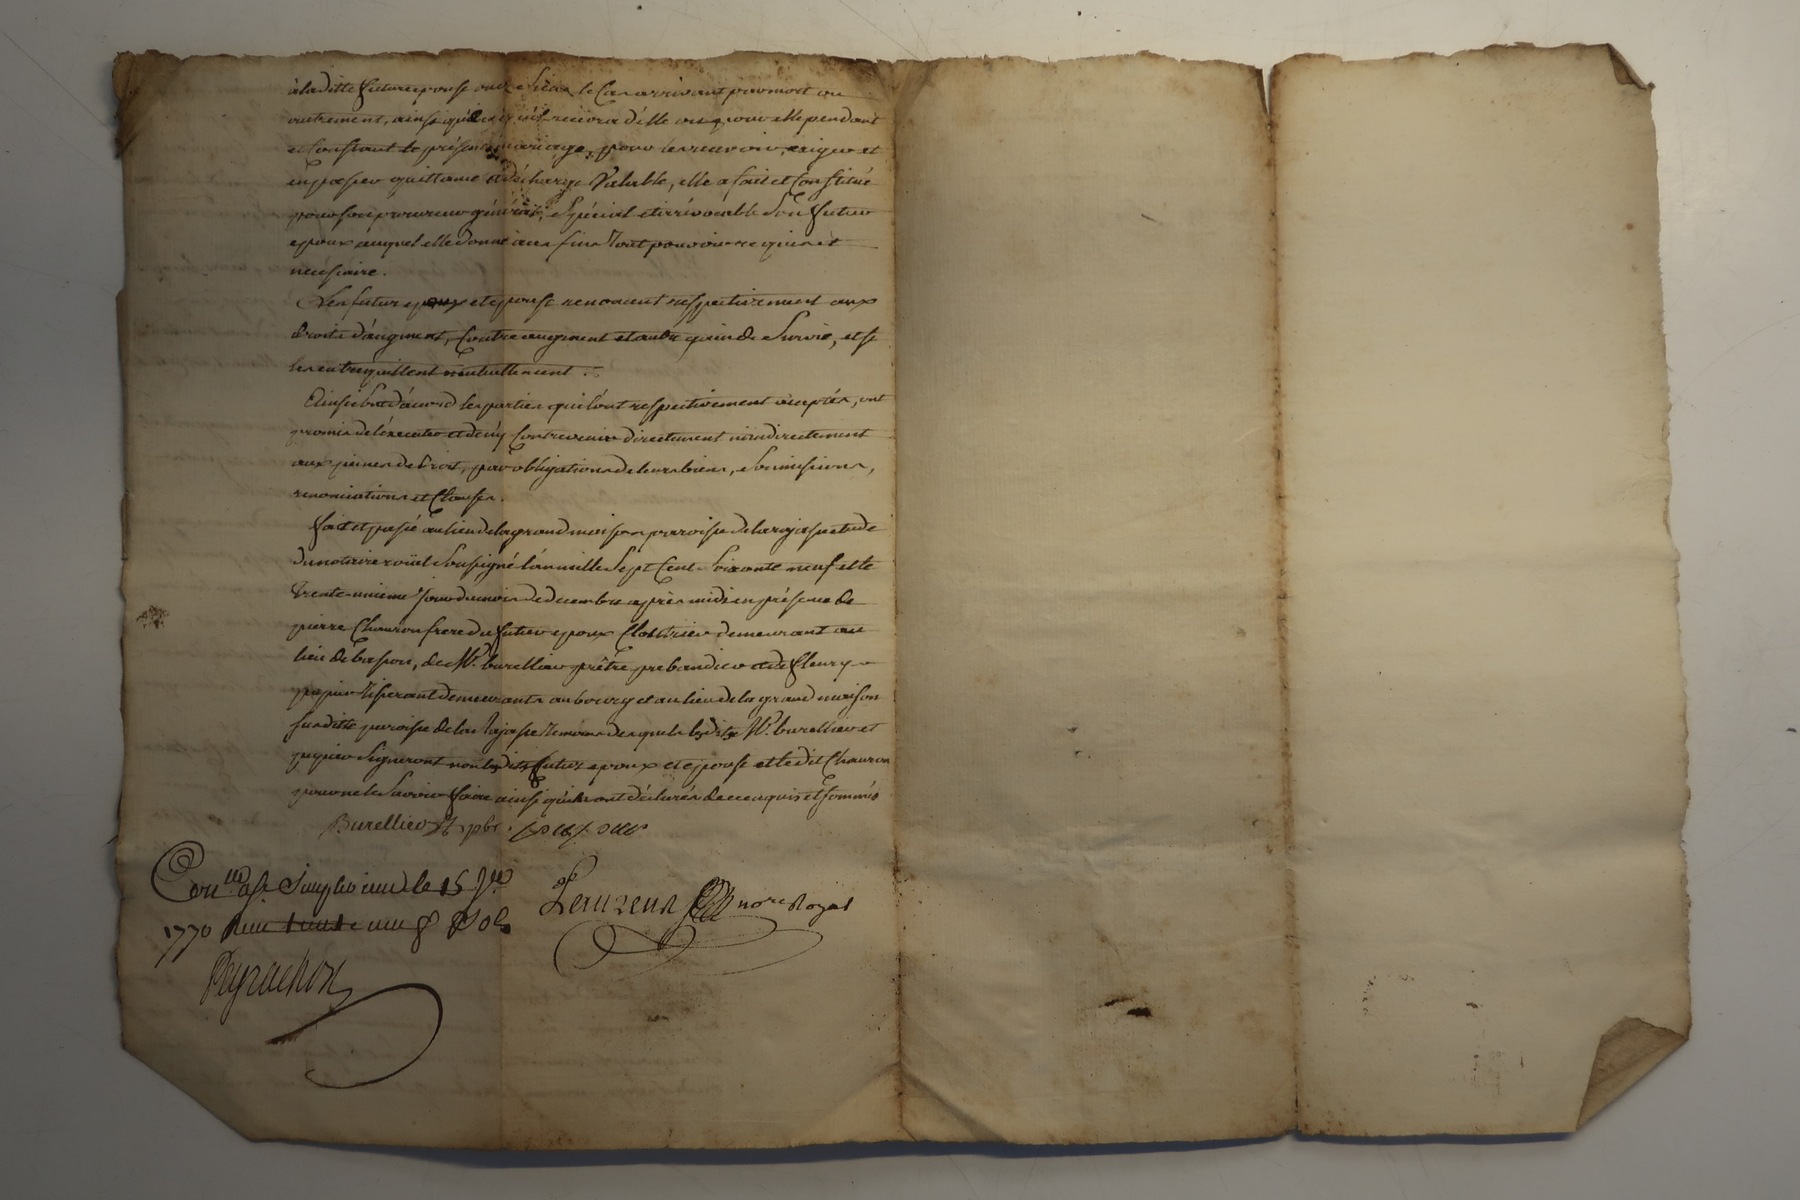 à laditte future epouse le Cas arrivant par mort ou
autrement, ainsi que recevra d'elle ou pour elle pendant
et Constant le présent mariage, pour les recevoir, exiger et
en passer quittance et décharge Valable, elle a fait et Constitué
pour son procureur général, Spécial et irrévocable Son futur
epoux auquel elle donne à ces fins Tout pouvoir requis et
nécessaire.
Les futurs epoux et epouse renoncent respectivement aux
droits d'augment, Contre augment et autre gain de Survie, et se
les entrequittent mutuellement.
Ainsi d'acord les parties qui l'ont respectivement acceptés, ont
promis de l'executer et de n'y Contrevenir directement ni indirectement
aux peines de Droit, par obligations de leurs biens, Soumissions,
renonciations et Clauses.
fait et passé au lieu de la grand maison paroisse de la rajasse etude
du notaire roïal Sousigné l'an mille Sept Cent Soixante neuf et le
Trente unieme jour du mois de decembre après midi en présence de
pierre Chauron frere du futur epoux demeurant au
lieu de bason, de Mr. burellier prêtre prebandier et de fleury
papier Tisserant demeurants au bourg et au lieu de la grand maison
susditte paroisse de la Rajasse Témoins desquels lesdits Mr. burellier et
papier Signeront non lesdits futurs epoux et epouse et ledit Chauron
pour ne le Savoir faire ainsi qu'ils ont déclarés de ce enquis et Sommés
Burellier pbr.
Con.lle à St Simphorien le 15 J.er
1770 Reçu trente neuf Sols
Laurens no.re Royal
Peyrachon